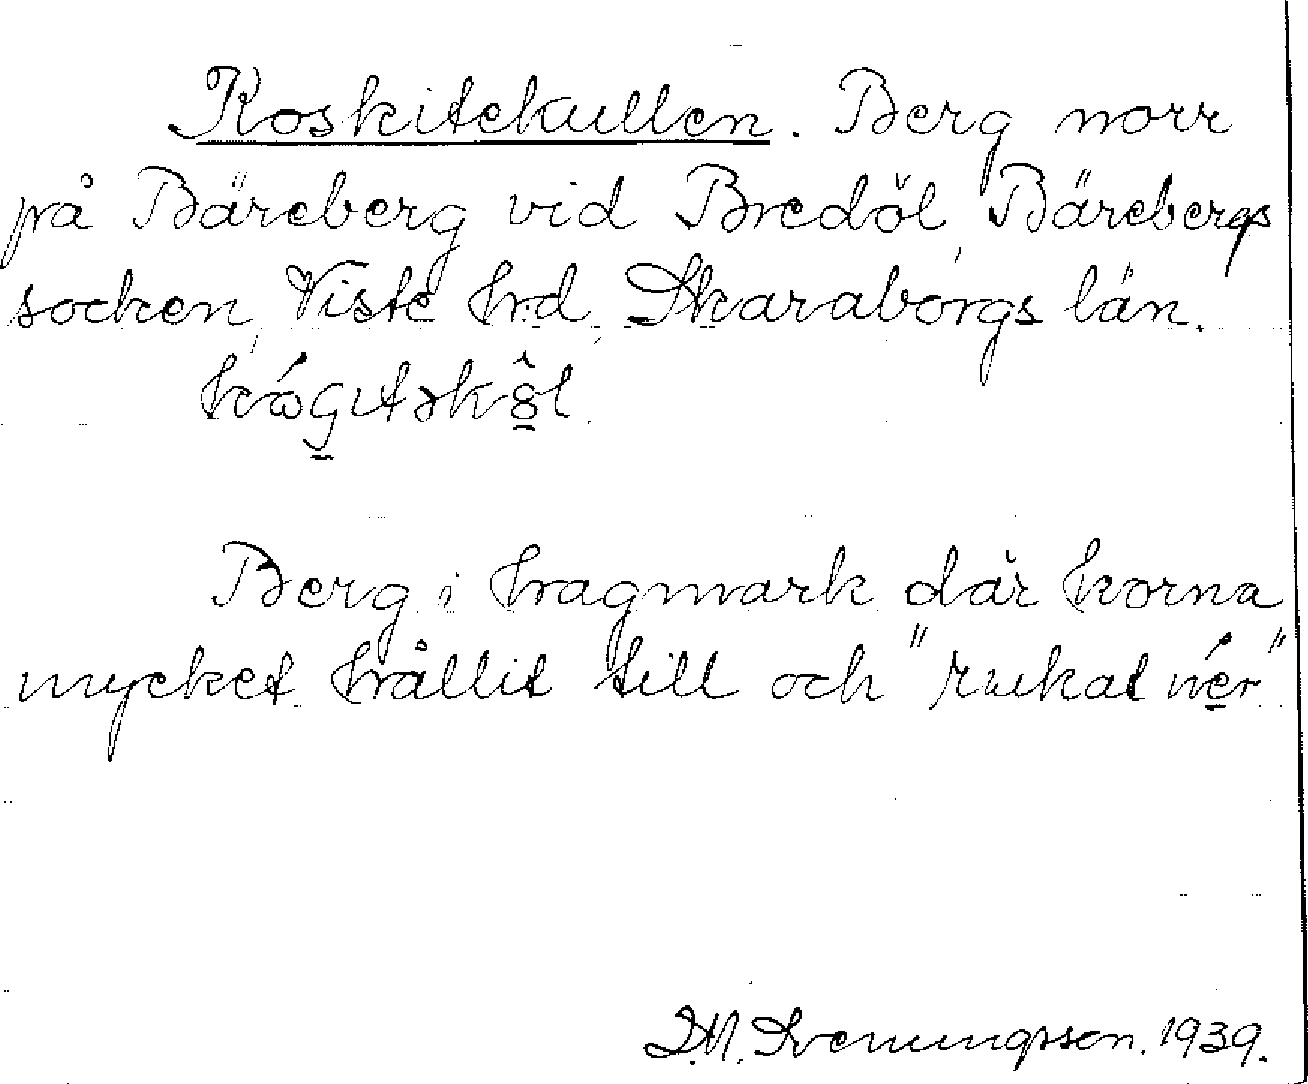 Koskitekullen. Berg norr
på Bäreberg vid Bredöl, Bärebergs
socken, Viste hd, Skaraborgs län.
Berg i hagmark där korna
mycket hållit till och "rukat nér"
Svenungsson. 1939.